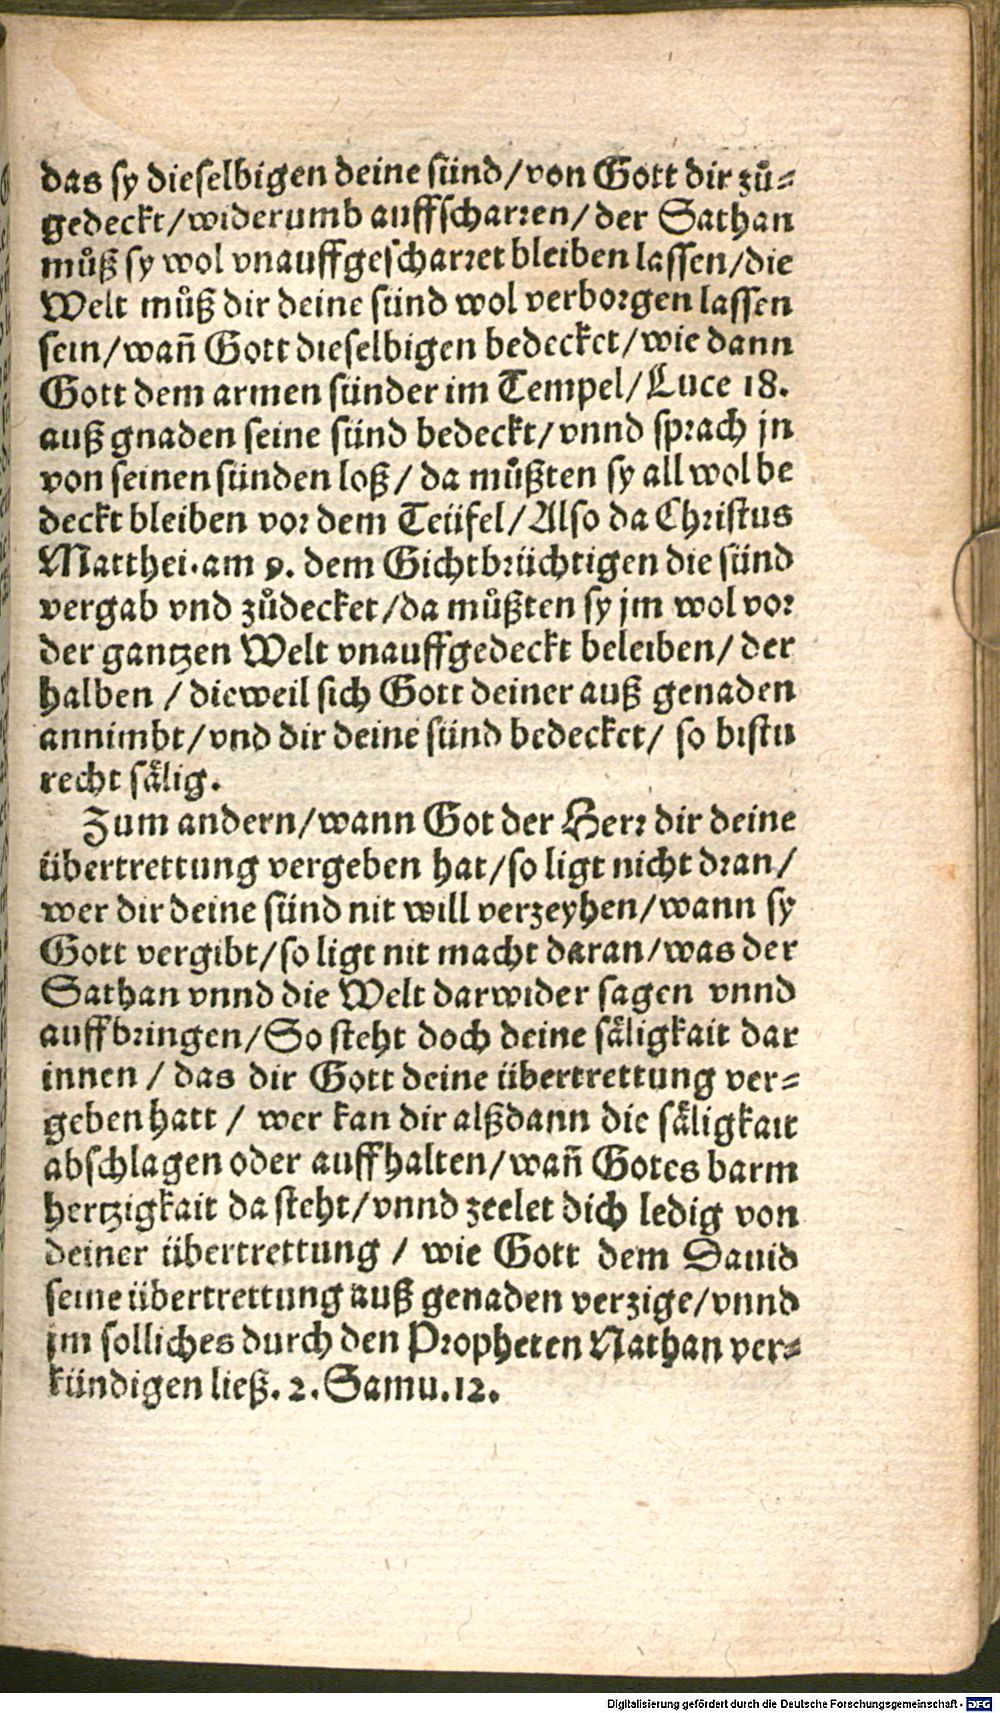 das sy dieselbigen deine sünd/von Gott dir zů-
gedeckt/widerumb auffscharren/der Sathan
můß sy wol vnauffgescharret bleiben lassen/die
Welt můß dir deine sünd wol verborgen lassen
sein/wañ Gott dieselbigen bedecket/wie dann
Gott dem armen sünder im Tempel/Luce 18.
auß gnaden seine sünd bedeckt/vnnd sprach jn
von seinen sünden loß/da můßten sy all wol be
deckt bleiben vor dem Teüfel/Also da Christus
Matthei.am 9. dem Gichtbrüchtigen die sünd
vergab vnd zůdecket/da můßten sy jm wol vor
der gantzen Welt vnauffgedeckt beleiben/der
halben/dieweil sich Gott deiner auß genaden
annimbt/vnd dir deine sünd bedecket/so bistu
recht sålig.
Zum andern/wann Got der Herr dir deine
übertrettung vergeben hat/so ligt nicht dran/
wer dir deine sünd nit will verzeyhen/wann sy
Gott vergibt/so ligt nit macht daran/was der
Sathan vnnd die Welt darwider sagen vnnd
auffbringen/So steht doch deine såligkait dar
innen/das dir Gott deine übertrettung ver-
geben hatt/wer kan dir alßdann die såligkait
abschlagen oder auffhalten/wañ Gotes barm
hertzigkait da steht/vnnd zeelet dich ledig von
deiner übertrettung/wie Gott dem Dauid
seine übertrettung auß genaden verzige/vnnd
jm solliches durch den Propheten Nathan ver-
kündigen ließ.2.Samu.12.
Digitalisierung gefördert durch die Deutsche Forschungsgemeinschaft - DFG